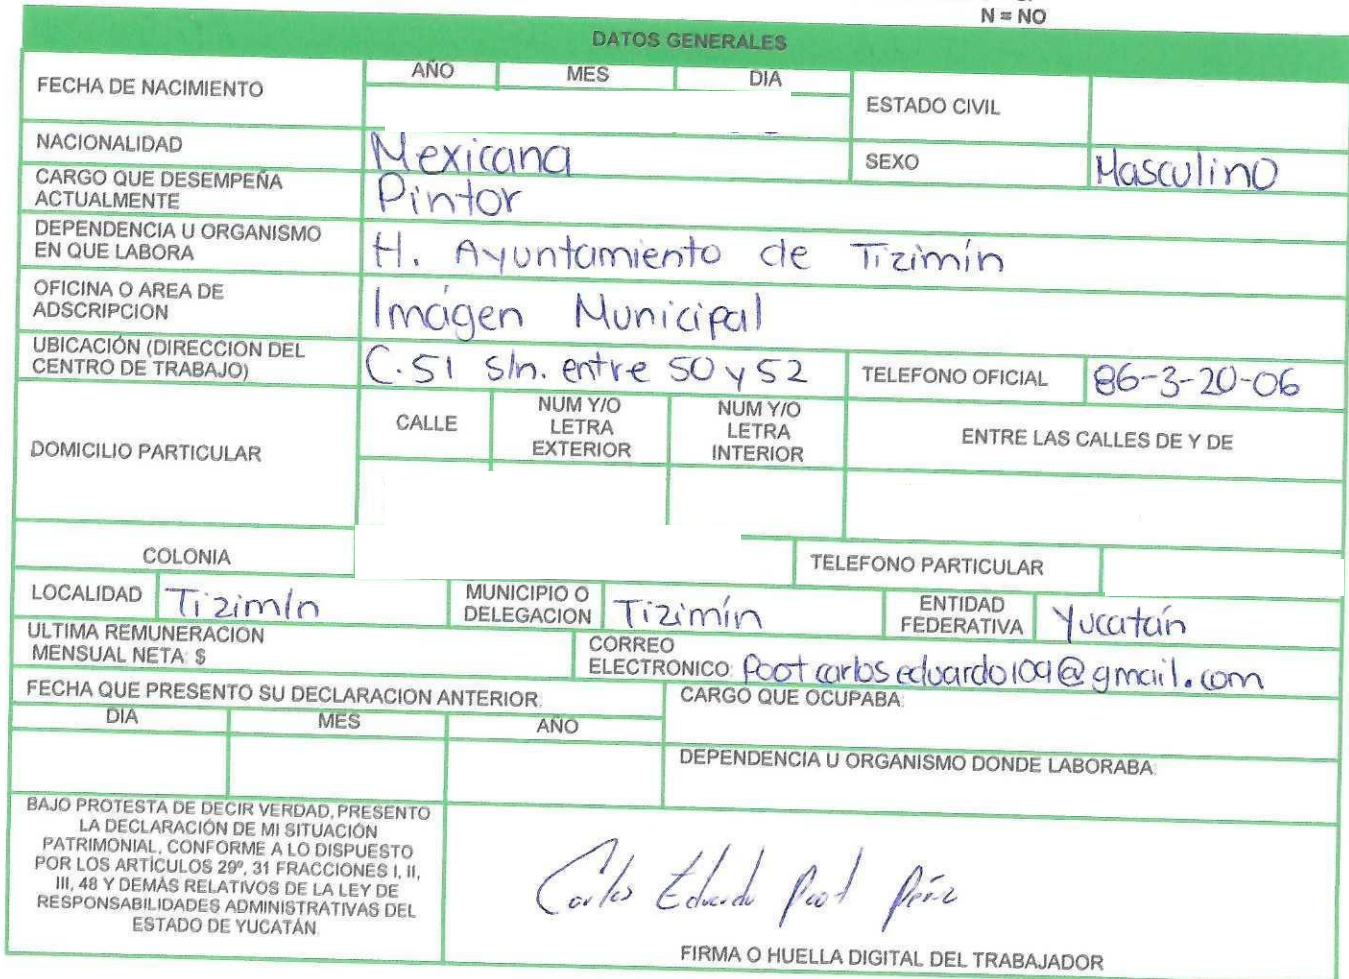 N = NO
DATOS GENERALES
FECHA DE NACIMIENTO AÑO MES DIA ESTADO CIVIL
NACIONALIDAD Mexicana SEXO Masculino
CARGO QUE DESEMPEÑA
ACTUALMENTE Pintor
DEPENDENCIA U ORGANISMO
EN QUE LABORA H. Ayuntamiento de Tizimín
OFICINA O AREA DE
ADSCRIPCION Imágen Municipal
UBICACIÓN (DIRECCION DEL
CENTRO DE TRABAJO) C.51 s/n. entre 50 y 52 TELEFONO OFICIAL 86-3-20-06
DOMICILIO PARTICULAR CALLE NUM Y/O
LETRA
EXTERIOR NUM Y/O
LETRA
INTERIOR ENTRE LAS CALLES DE Y DE
COLONIA TELEFONO PARTICULAR
LOCALIDAD Tizimín MUNICIPIO O
DELEGACION Tizimín ENTIDAD
FEDERATIVA Yucatán
ULTIMA REMUNERACION
MENSUAL NETA: $
CORREO
ELECTRONICO: Pootcarloseduardo109@gmail.com
FECHA QUE PRESENTO SU DECLARACION ANTERIOR:
DIA MES AÑO
CARGO QUE OCUPABA:
DEPENDENCIA U ORGANISMO DONDE LABORABA:
BAJO PROTESTA DE DECIR VERDAD, PRESENTO
LA DECLARACIÓN DE MI SITUACIÓN
PATRIMONIAL, CONFORME A LO DISPUESTO
POR LOS ARTÍCULOS 29º, 31 FRACCIONES I, II,
III, 48 Y DEMÁS RELATIVOS DE LA LEY DE
RESPONSABILIDADES ADMINISTRATIVAS DEL
ESTADO DE YUCATÁN.
Carlos Eduardo Poot Pérez
FIRMA O HUELLA DIGITAL DEL TRABAJADOR